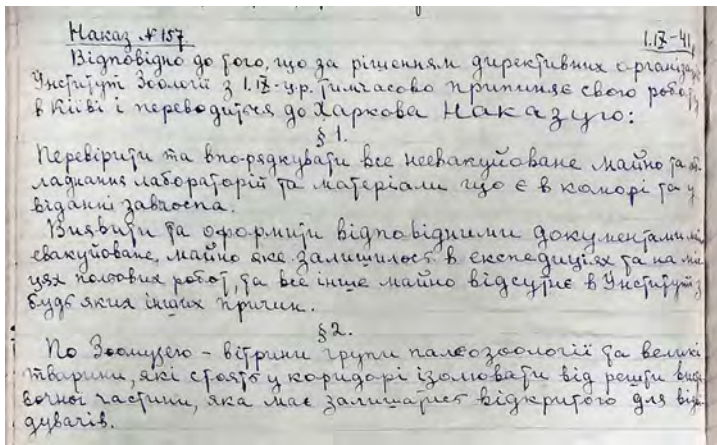 Наказ № 157. 1.IX-41
Відповідно до того, що за рішенням директивних організац
Інститут Зоології з 1.IX-ц.р. тимчасово припиняє свою роботу
в Київі і переводиться до Харкова Наказую:
§ 1.
Перевірити та впорядкувати все неевакуйоване майно та об-
ладнання лабораторій та матеріали що є в коморі та у
віданні завгоспа.
Виявити та оформити відповідними документами не
евакуйоване, майно яке залишилось в експедиціях та на мі
цях польових робот, та все інше майно відсутнє в Інституті з
будь яких інших причин.
§ 2.
По Зоомузею – вітрини групи палеозоології та великі
тварини, які стоять у коридорі ізолювати від решти вист
вочної частини, яка має залишатись відкритого для відві
дувачів.